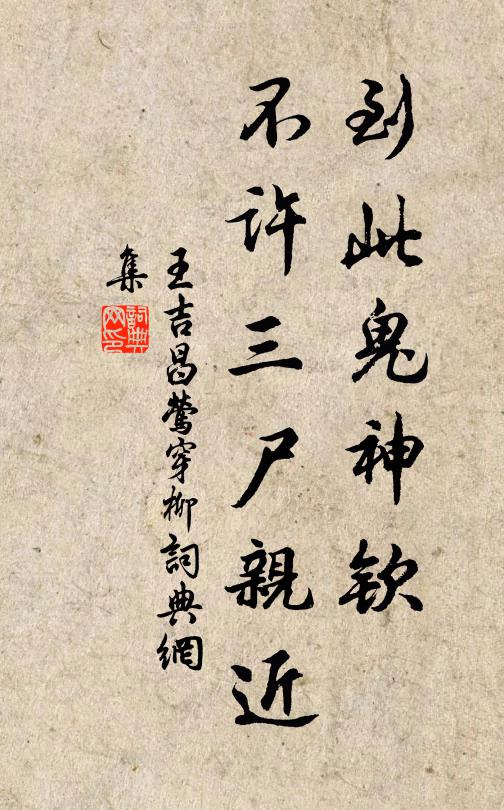 到此鬼神欽
不許三尸親近
王吉昌鶯穿柳詞典網
集
詞典
网印